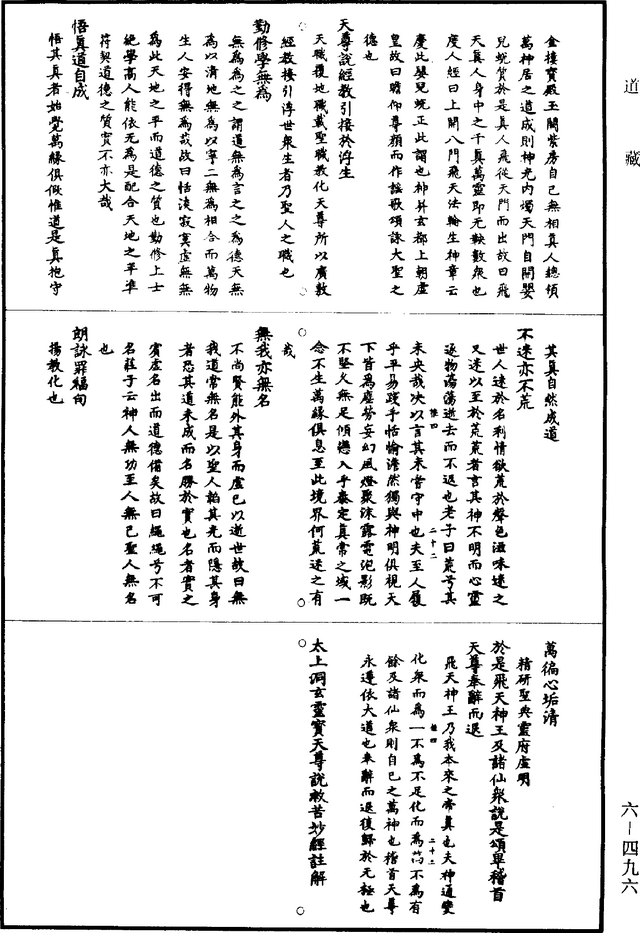 道藏
金樓寶殿玉闕紫房自己無相真人總領
萬神居之道成則神光內燭天門自開嬰
兒蛻質於是真人飛從天門而出故曰飛
天真人身中之千真萬靈即无鞅數衆也
度人經曰上開八門飛天法輪生神章云
慶此嬰兒蛻正此謂也神升玄都上朝虛
皇故曰瞻仰尊顏而作謡歌頌詠大聖之
德也
天尊說經教引接於浮生
天職覆地職載聖職教化天尊所以廣敷
經教接引浮世衆生者乃聖人之職也
勤修學無為
無為為之之謂道無為言之之為德天無
為以清地無為以寧二無為相合而萬物
生人安得無為哉故曰恬淡寂寞虛無無
為此天地之平而道德之質也勤修上士
絕學高人能依无為是配合天地之平準
符契道德之質實不亦大哉
悟真道自成
悟其真者始覺萬緣俱假惟道是真抱守
其真自然成道
不迷亦不荒
世人迷於名利情欲荒於聲色滋味迷之
又迷以至於荒荒者言其神不明而心靈
逐物蕩蕩逝去而不返也老子曰荒兮其
未央哉決以言其未當守中也夫至人履
乎平易踐乎恬愉澹然獨與神明俱視天
下皆為塵勞妄幻風燈聚沫露電泡影既
不堅久無足傾戀入乎泰定真常之域一
念不生萬緣俱息至此境界何荒迷之有
哉
無我亦無名
不尚賢能外其身而虛己以逝世故曰無
我道常無名是以聖人韜其光而隱其身
者恐其道未成而名勝於實也名者實之
賓虛名出而道德備矣故曰繩繩兮不可
名莊子云神人無功至人無己聖人無名
也
朗詠罪福句
揚教化也
萬徧心垢清
精研聖典靈府虛明
於是飛天神王及諸仙衆說是頌畢稽首
天尊奉辭而退
飛天神王乃我本來之帝真也夫神通變
化衆而為一不為不足化而為萬不為有
餘及諸仙衆則自已之萬神也稽首天尊
永遵依大道也奉辭而退復歸於无極也
太上洞玄靈寶天尊說救苦妙經註解
六－四九六